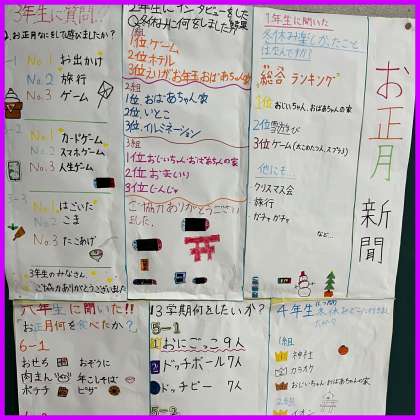 お正月新聞
1年生に聞いた
冬休み楽しかったこと
はなんですか?
総合ランキング
1位 おじいちゃん、おばあちゃんの家
2位 雪遊び
3位 ゲーム(太このたつ人、スプラ3)
他にも…
クリスマス会
旅行
ガチャガチャ
など…
2年生にインタビューをした
Q冬休みに何をしました
1位 ゲーム
2位 ホテル
2組
1位、おばあちゃん家
2位、いとこ
3位、イルミネーション
3組
1位 おじいちゃん・おばあちゃんの家
2位
3位 じんじゃ
ご協力ありがとうござい
ました。
3年生に質問
お正月なにをして遊びましたか?
No.1 お出かけ
No.2 旅行
No.3 ゲーム
No.1 カードゲーム
No.2 スマホゲーム
No.3 人生ゲーム
No.1 はごいた
No.2 こま
No.3 たこあげ
3年生のみなさん
ご協力ありがとうございました
4年生
1組
神社
カラオケ
おじいちゃん、おばあちゃんの家
2組
イオン
3学期何をしたいか?
5-1
1 おにごっこ 9人
2 ドッチボール 7人
ドッチビー 7人
5-2
六年生に聞いた!!
お正月何を食べたか?
6-1
おせち おぞうに
肉まん 年こしそば
ポテチ ピザ